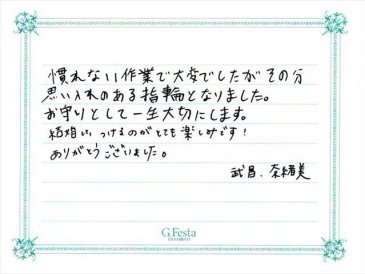 慣れない作業で大変でしたがその分
思い入れのある指輪となりました。
お守りとして一生大切にします。
結婚式つけるのがとても楽しみです！
ありがとうございました。
武昌、奈緒美
G.Festa
DIAMOND